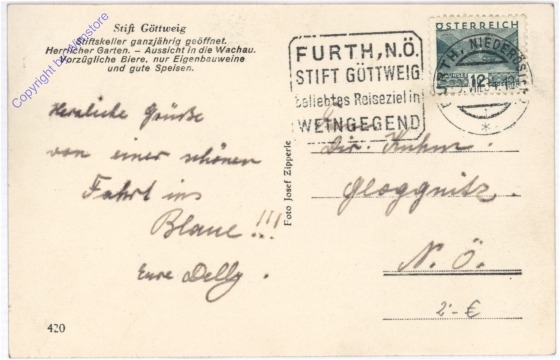 Stift Göttweig
Stiftskeller ganzjährig geöffnet.
Herrlicher Garten. – Aussicht in die Wachau.
Vorzügliche Biere, nur Eigenbauweine
und gute Speisen.
Copyright by
FURTH, N.Ö.
STIFT GÖTTWEIG
beliebtes Reiseziel in
WEINGEGEND
ÖSTERREICH
12
FURTH, NIEDERÖSTERR.
Herzliche Grüße
von einer schönen
Fahrt ins
Blaue!!!
Eure Delly.
Foto Josef Zipperle
Dir. Kuhm
Gloggnitz.
N.Ö.
2.- €
420